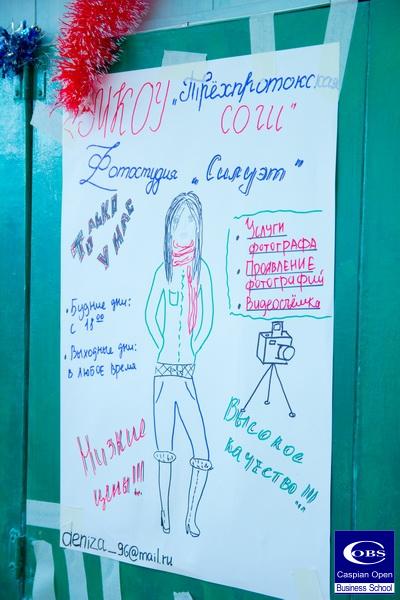 МКОУ „Трёхпротокская
СОШ"
Фотостудия „Силуэт"
Только
у нас
• Услуги
фотографа
• Проявление
фотографий
• Видеосъёмка
• Будние дни:
с 18 00
• Выходные дни:
в любое время
Низкие
цены!!!...
Высокое
качество!!!...
deniza_96@mail.ru
COBS
Caspian Open
Business School